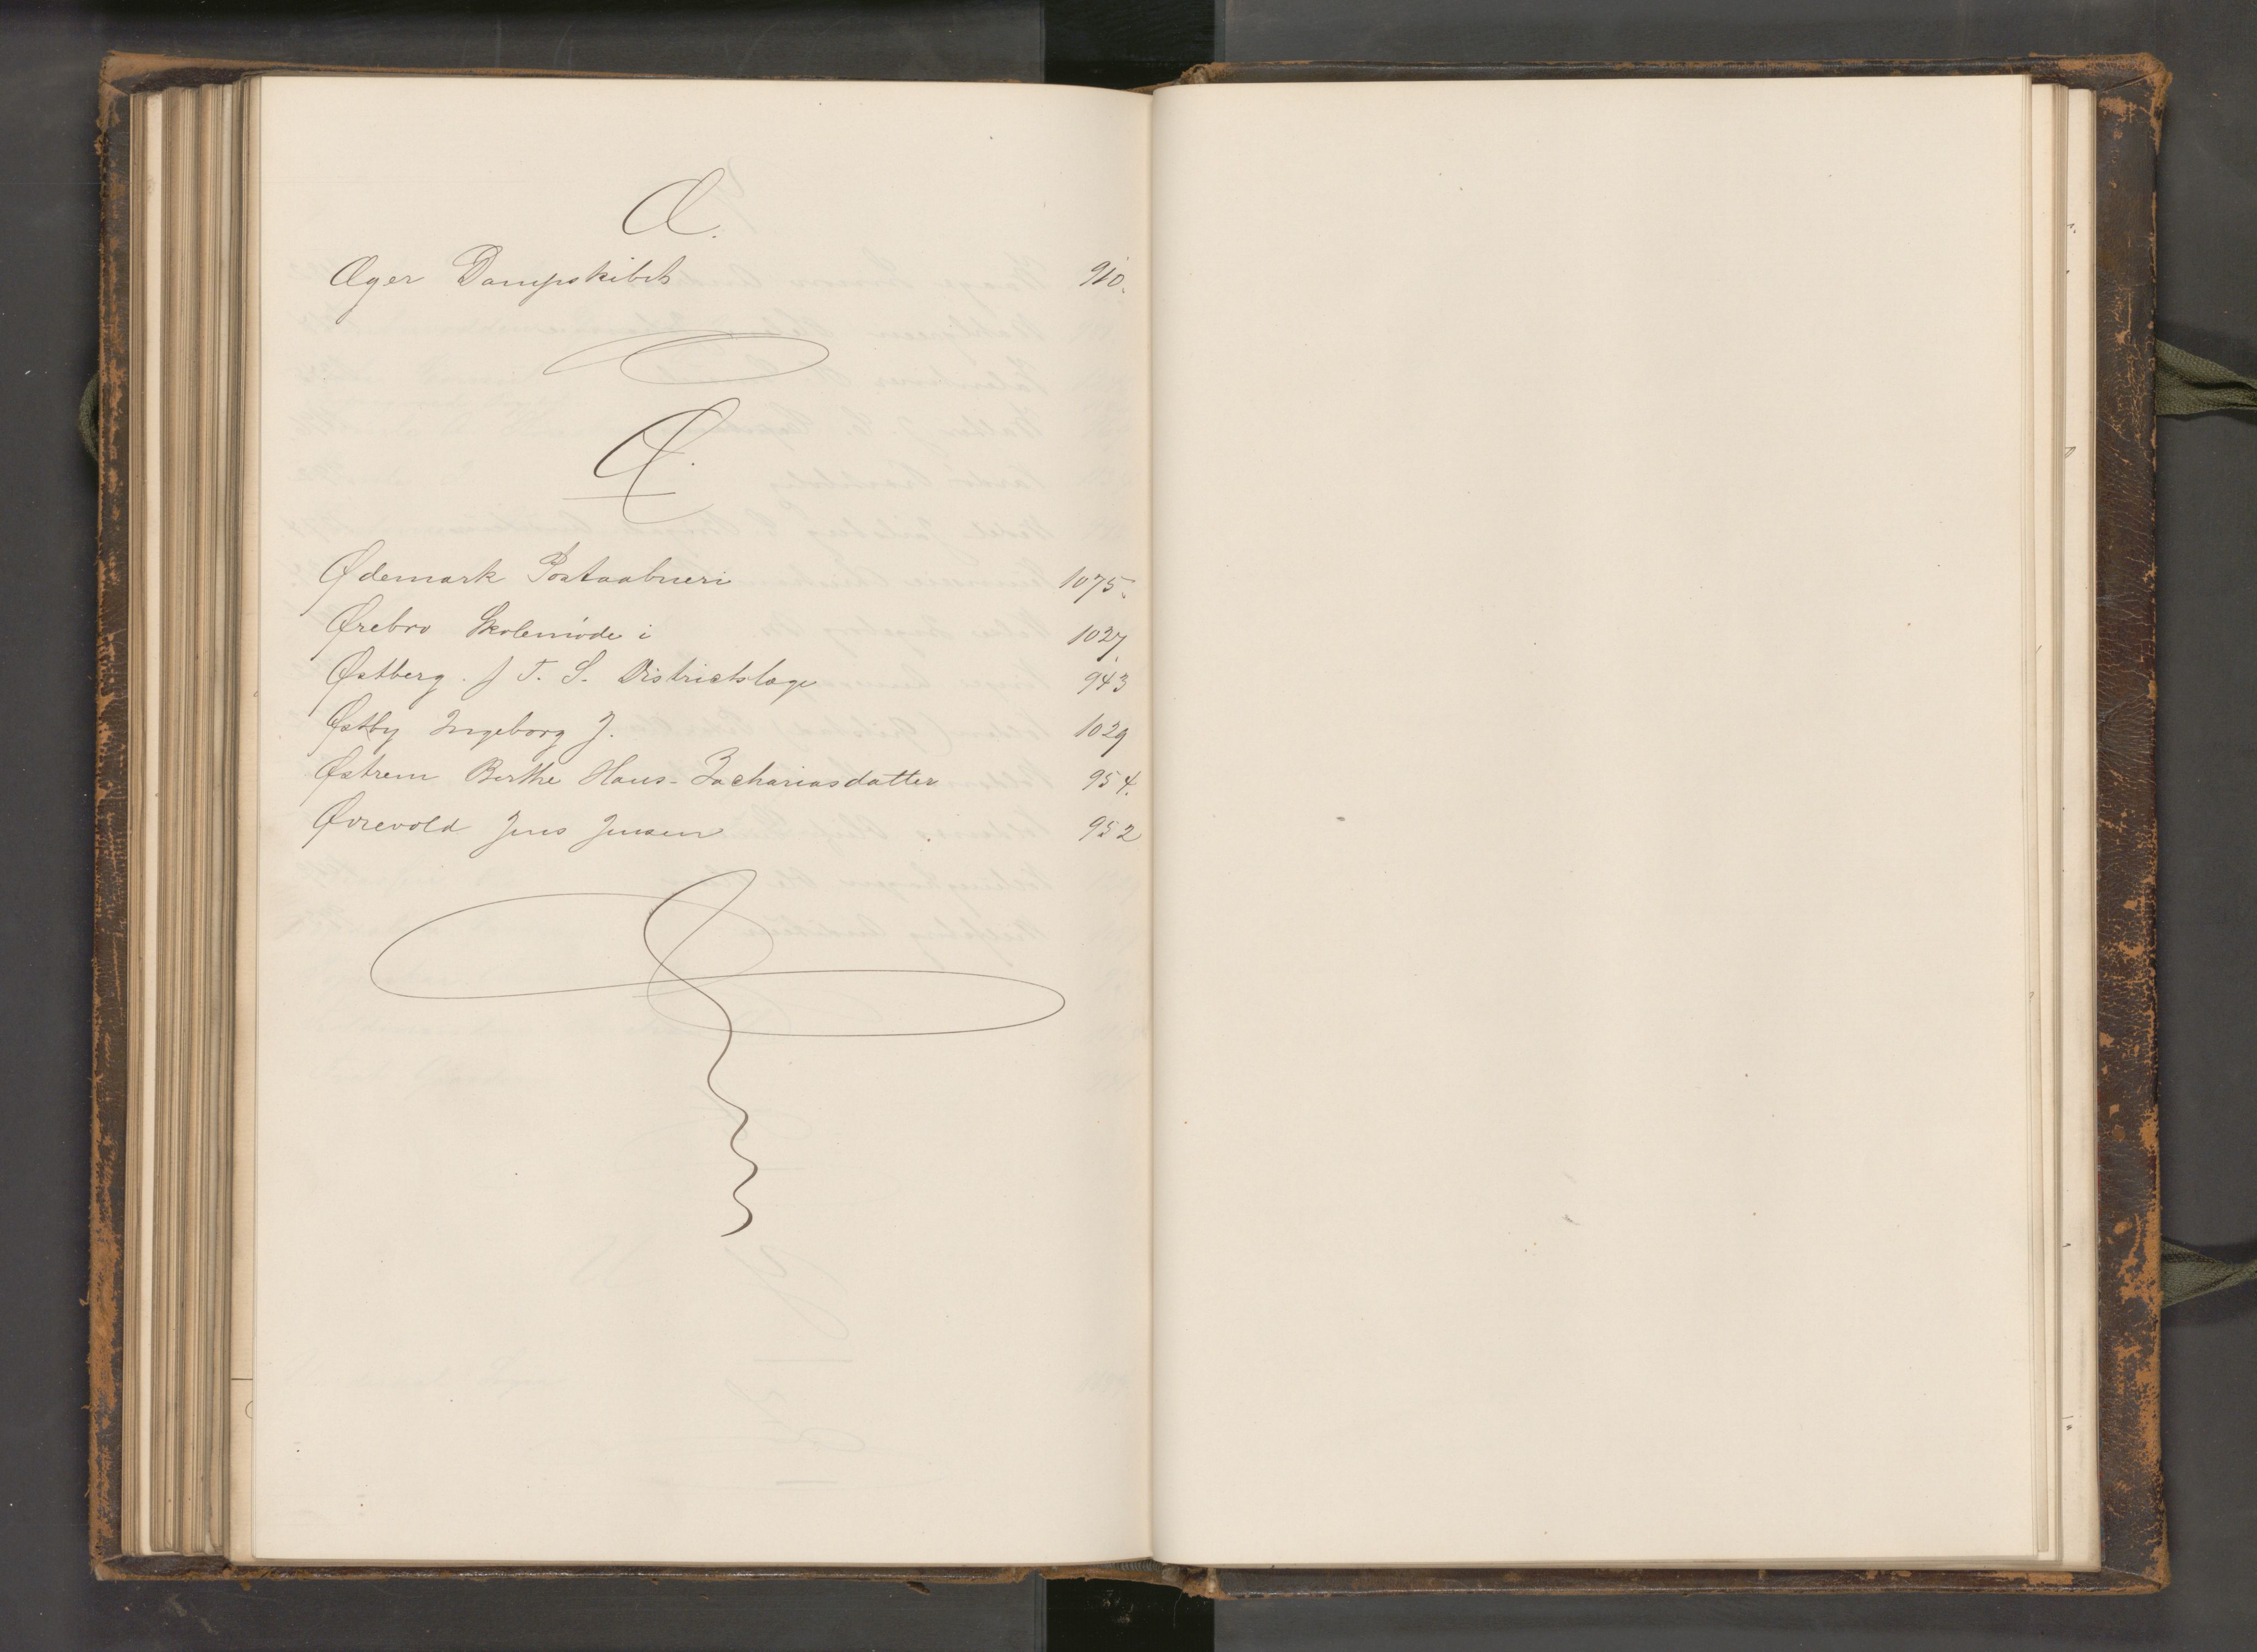 Æ.
Æger Dampskibet 910.
Ø.
Ødemark Postaabneri 1075.
Ørebro Skolemøde i 1027
Østberg. J T. S. Districtslæge 943
Østby Ingeborg J. 1029
Østrem Berthe Hans-Zachariasdatter 954.
Øvrevold Jens Jensen 952